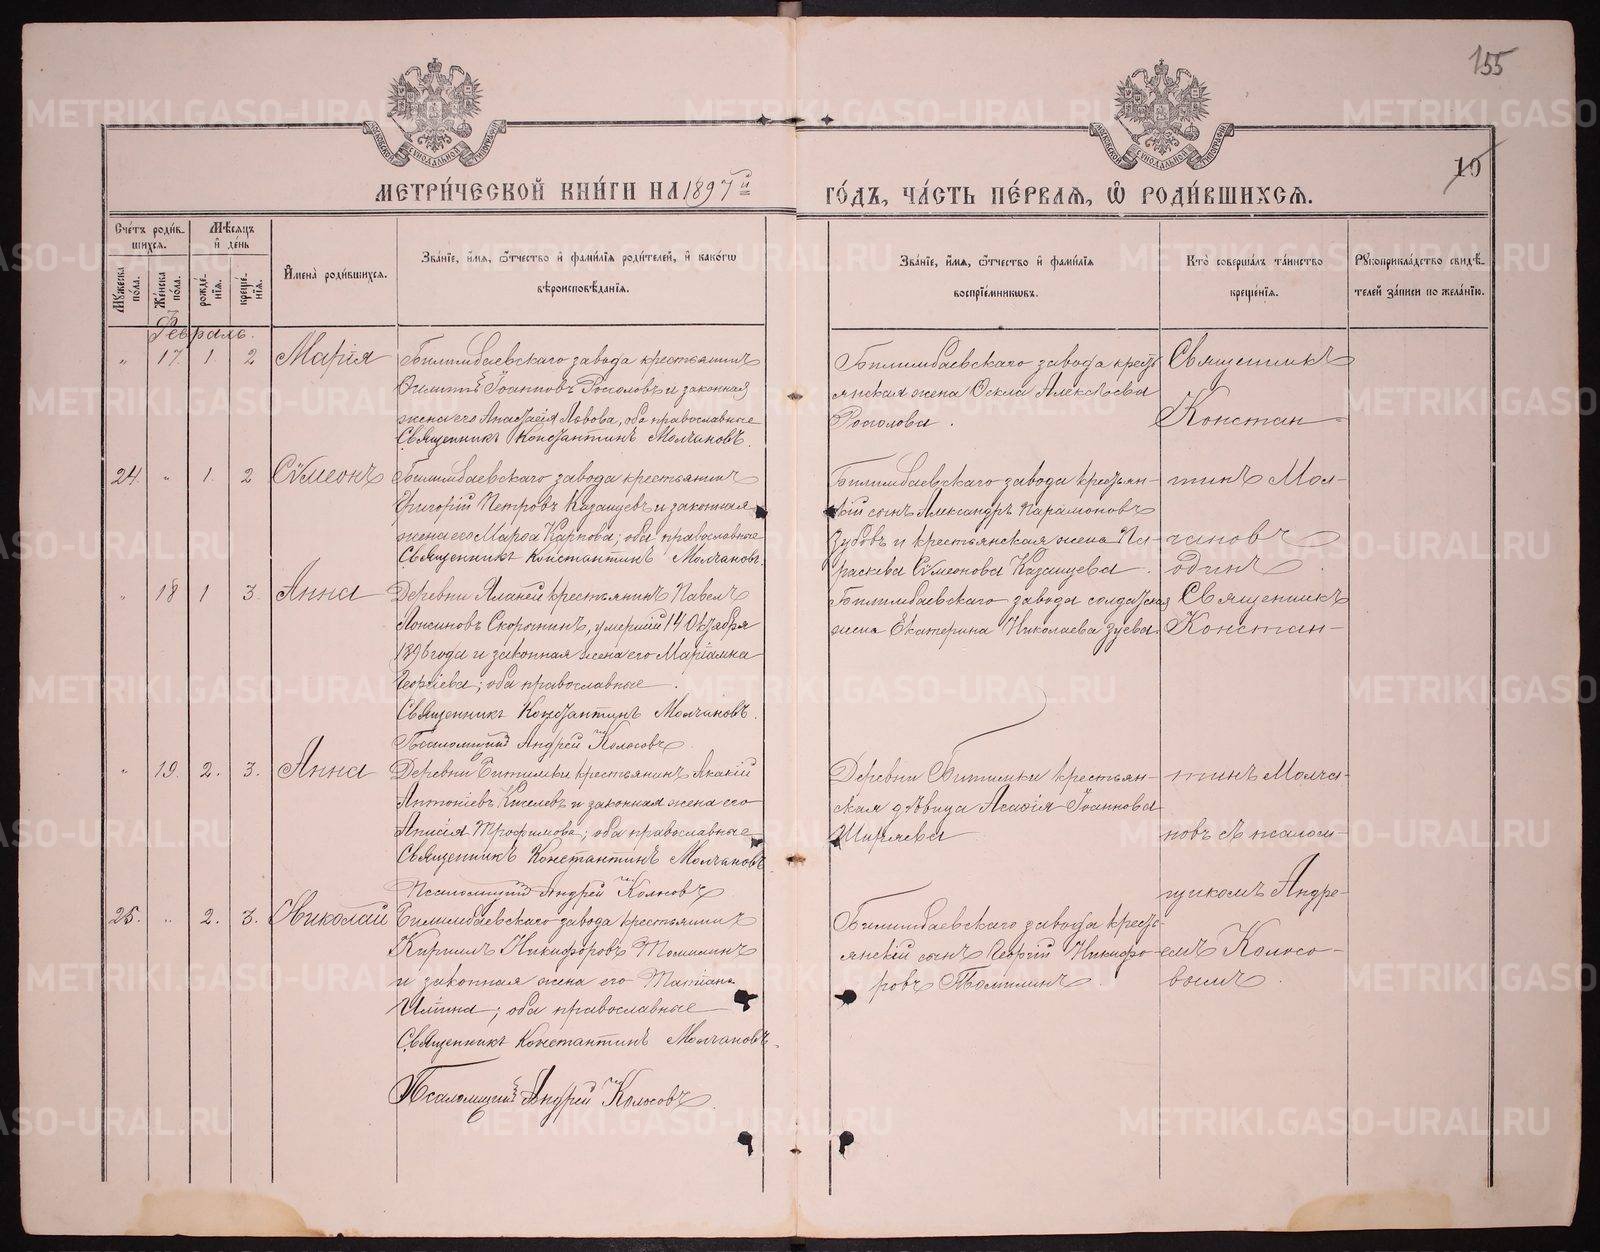 155
10
МЕТРИ́ЧЕСКОЙ КНИ́ГИ НА 1897й
ГО́ДЪ, ЧА́СТЬ ПЕ́РВАЯ, Ѿ РОДИ́ВШИХСЯ.
Сче́тъ роди́в-
шихся.
Мѣ́сяцъ
и де́нь
Му́жеска по́ла.
Же́нска по́ла.
рожде́-
нія.
креще́-
нія.
Имена̀ роди́вшихся.
Зва́ніе, и́мя, ѻ́тчество и фами́лія роди́телей, и како́гѡ
вѣроисповѣ́данія.
Зва́ніе, и́мя, ѻ́тчество и фами́лія
воспріе́мниковъ.
Кто̀ соверша́лъ та́инство
креще́нія.
Рукоприкла́дство свидѣ́-
телей за́писи по жела́нію.
Февраль.
" 17. 1. 2 Марія
Билимбаевскаго завода крестьянинъ
Іоанновъ и законная
жена его Анастасія Львова, оба православные
Священникъ Константинъ Молчановъ.
Билимбаевскаго завода кресть-
янская жена Ѳекла Алексѣева
Священникъ
Констан-
24. " 1. 2 Сѵмеонъ
Билимбаевскаго завода крестьянинъ
Григорій Петровъ Казанцевъ и законная
жена его Марѳа Карпова; оба православные
Священникъ Константинъ Молчановъ.
Билимбаевскаго завода крестьян-
скій сынъ Александръ Парамоновъ
Зубовъ и крестьянская жена Па-
раскева Сѵмеонова Казанцева.
тинъ Мол-
чановъ
одинъ.
" 18 1 3. Анна
Деревни крестьянинъ Павелъ
Скорынинъ, умершій 14 Октября
1896 года и законная жена его Маріамна
Георгіева; оба православные.
Священникъ Константинъ Молчановъ.
Псаломщикъ Андрей Колосовъ.
Билимбаевскаго завода солдатская
жена Екатерина Николаева Зуева.
Священникъ
Констан-
" 19. 2. 3. Анна
Деревни Битимки крестьянинъ Акакій
Антоніевъ Киселевъ и законная жена его
Анисія Трофимова; оба православные
Священникъ Константинъ Молчановъ.
Псаломщикъ Андрей Колосовъ
Деревни Битимки крестьян-
ская дѣвица Агаѳія Іоаннова
Ширяева
тинъ Молча-
новъ съ псалом-
щикомъ Андре-
25. " 2. 3. Николай
Билимбаевскаго завода крестьянинъ
Кириллъ Никифоровъ Томилинъ
и законная жена его Татіана
Ильина; оба православные
Священникъ Константинъ Молчановъ.
Псаломщикъ Андрей Колосовъ.
Билимбаевскаго завода кресть-
янскій сынъ Георгій Никифо-
ровъ Томилинъ.
емъ Колосо-
вымъ.
METRIKI.GASO-URAL.RU